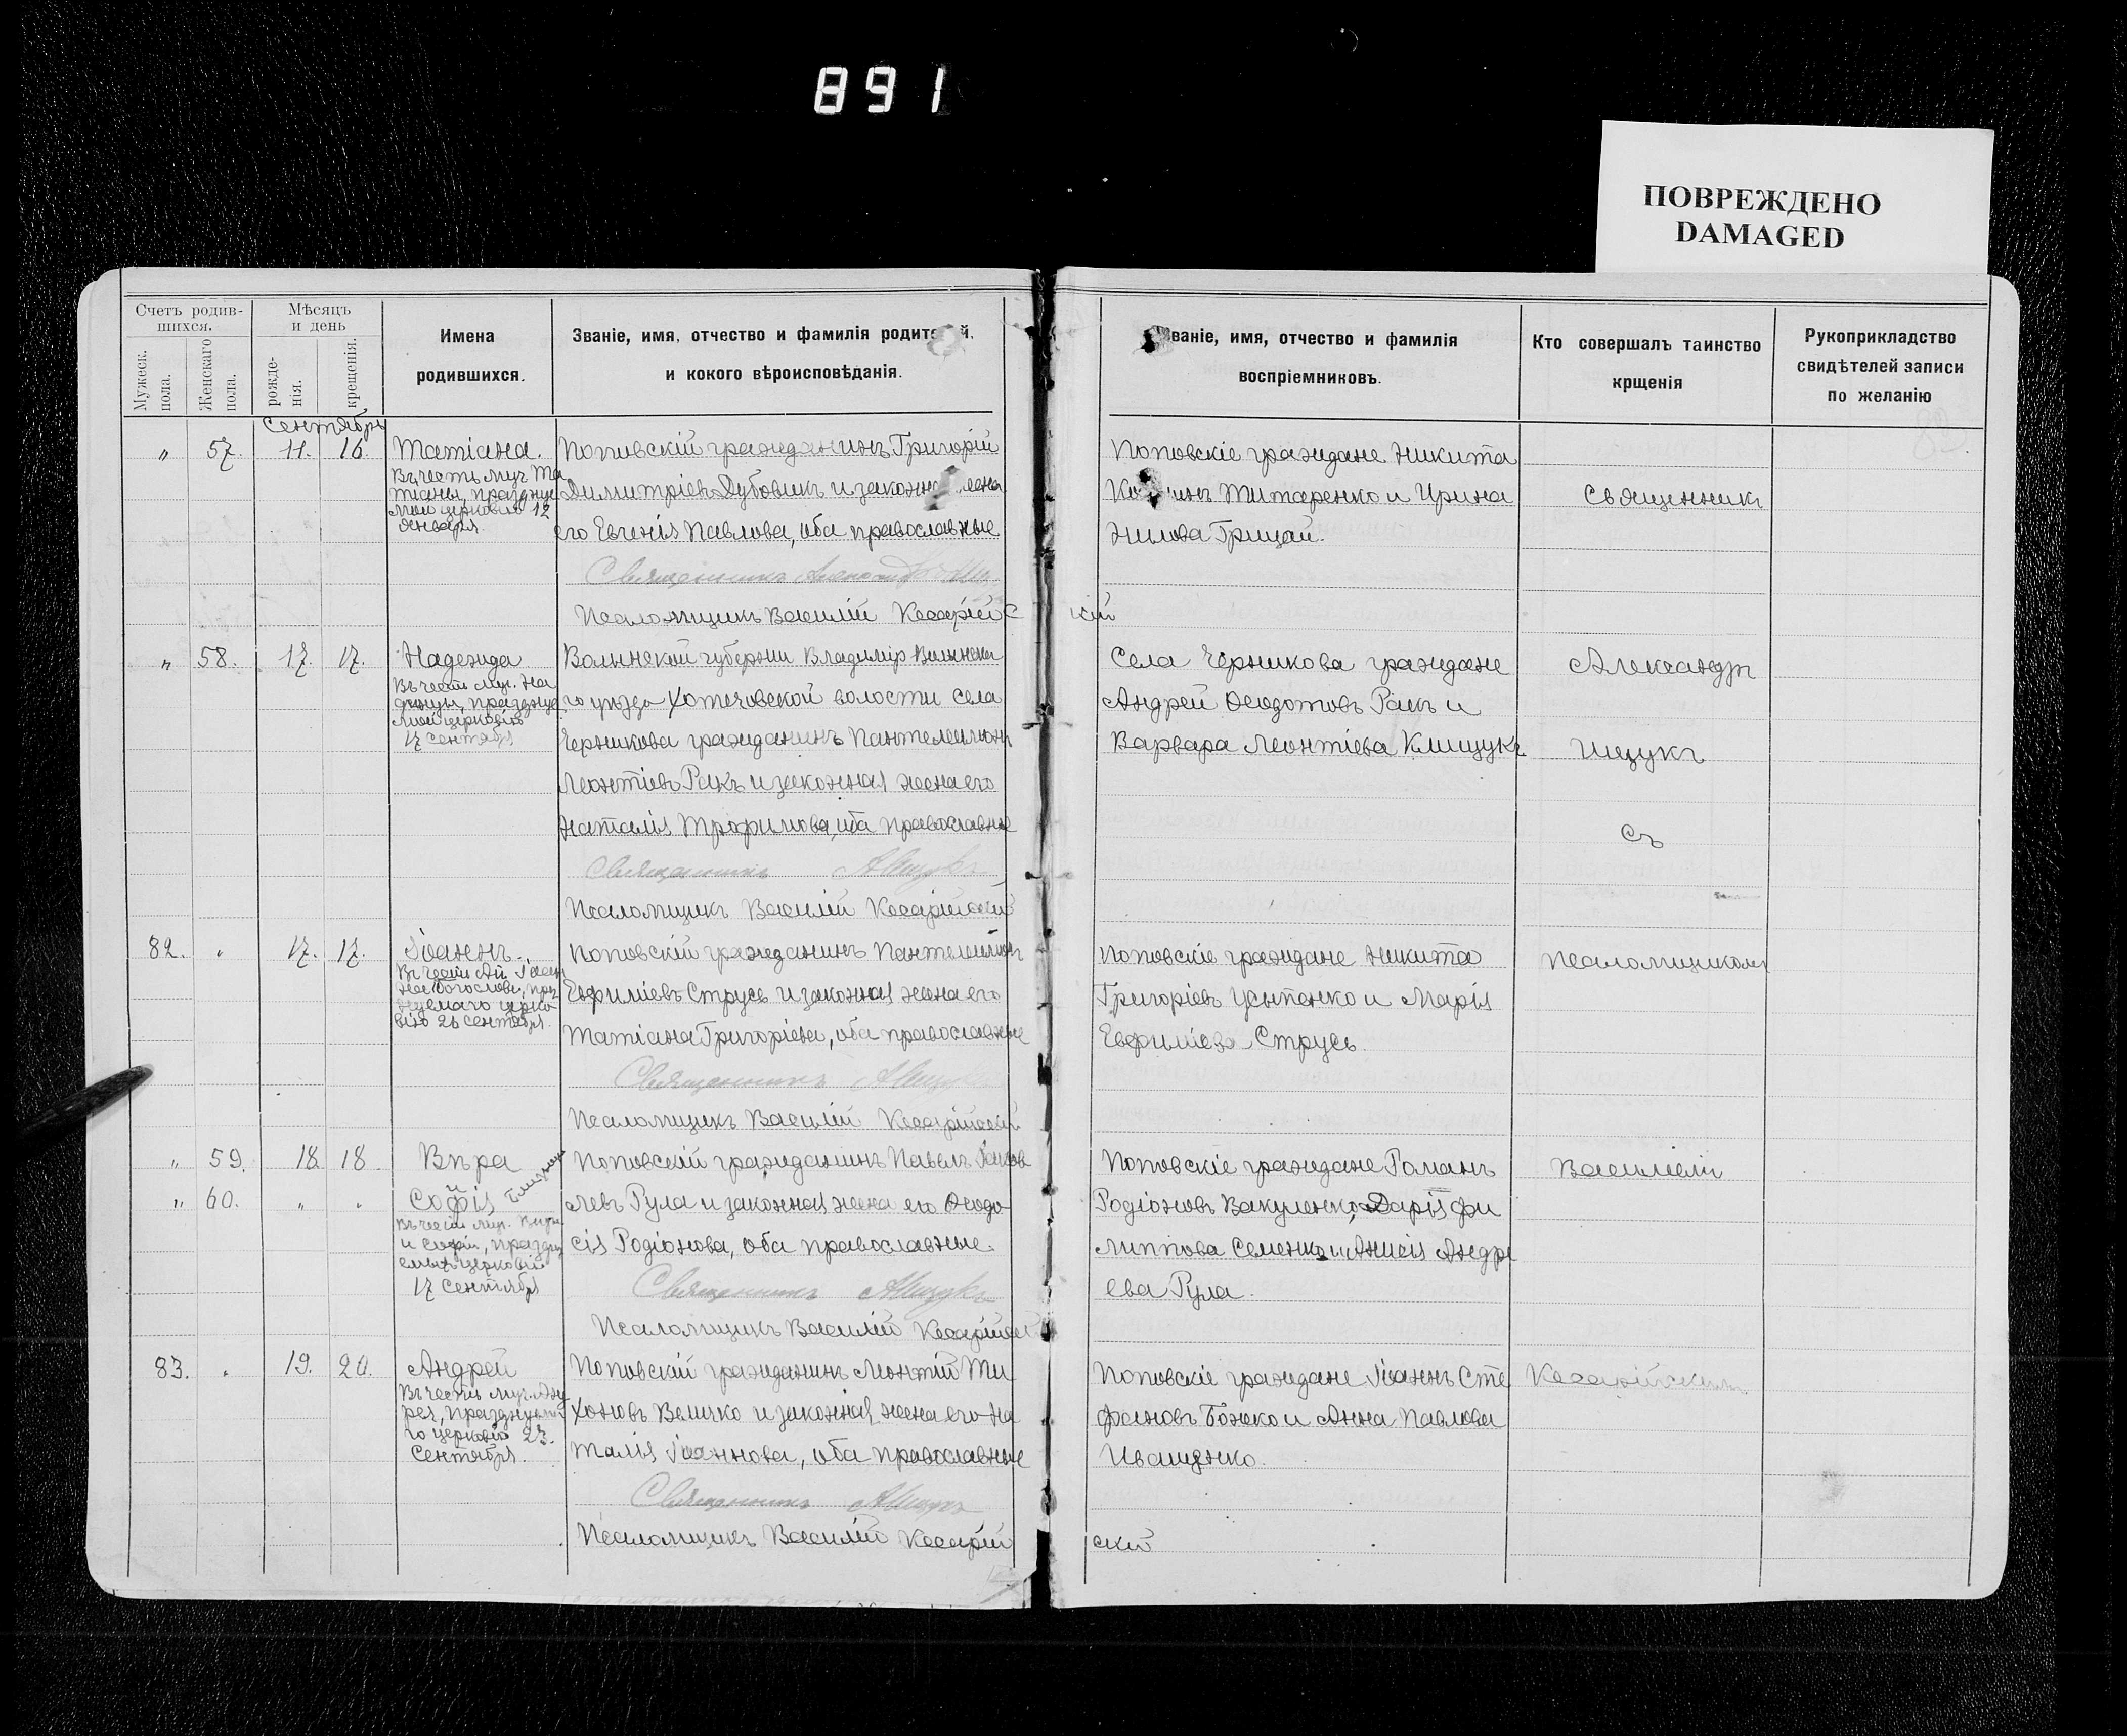 891
ПОВРЕЖДЕНО
DAMAGED
Счетъ родив-
шихся.
Мужеск.
пола.
Женскаго
пола.
Мѣсяцъ
и день
рожде-
нія.
крещенія.
Имена
родившихся.
Званіе, имя, отчество и фамилія родите й.
и кокого вѣроисповѣданія.
Званіе, имя, отчество и фамилія
воспріемниковъ.
Кто совершалъ таинство
крщенія
Рукоприкладство
свидѣтелей записи
по желанію
Сентябрь
" 57. 11. 16. Татіана.
Въ честь муч. Та
тіаны, празднуе
мой церковію 12
января.
Поповскій гражданинъ Григорій
Димитріевъ Дубовикъ и законная жена
его Евгенія Павлова, оба православные
Священникъ
Псаломщикъ Василій Кесарійскій
Поповскіе граждане Никита
Титаренко и Ирина
Нилова Грицай.
Священникъ
" 58. 17. 17. Надежда
Въ честь муч. На
дежды, празднуе
мой церковію
17 сентября
Волынской губерніи Владимір Волынска
го уѣзда Хотечовской волости села
Черникова гражданинъ Пантелеимонъ
Леонтіевъ Ракъ и законная жена его
Наталія Трофимова, оба православные
Священникъ А Ищукъ
Псаломщикъ Василій Кесарійскій
Села Черникова граждане
Андрей Ѳеодотовъ Ракъ и
Варвара Леонтіева Клищукъ
Александръ
Ищукъ
съ
82. " 17. 17. Іоаннъ.
Въ честь Ап. Іоан
на Богослова, праз
днуемаго церко
вію 26 сентября.
Поповскій гражданинъ Пантелеимонъ
Евфиміевъ Струсь и законная жена его
Татіана Григоріева, оба православные
Священникъ А Ищукъ
Псаломщикъ Василій Кесарійскій
Поповскіе граждане Никита
Григоріевъ Усыпенко и Марія
Евфиміева Струсь.
псаломщикомъ
" 59. 18. 18. Вѣра
и близнецы
" 60. " " Софія
Въ честь муч. Вѣры
и Софіи, праздну
емыхъ церковію
17 сентября
Поповскій гражданинъ Павелъ Іаков
левъ Рула и законная жена его Ѳеодо
сія Родіонова, оба православные.
Священникъ А Ищукъ
Псаломщикъ Василій Кесарійскій
Поповскіе граждане Романъ
Родіоновъ Вакуленко, Дарія Фи
липпова Семенко и Анисія Андре
ева Рула.
Василіемъ
83. " 19. 20. Андрей
Въ честь муч. Анд
рея, празднуемо
го церковію 23.
Сентября.
Поповскій гражданинъ Леонтій Ти
хоновъ Величко и законная жена его На
талія Іоаннова, оба православные
Священникъ А Ищукъ
Псаломщикъ Василій Кесарійскій
Поповскіе граждане Іоаннъ Сте
фановъ Божко и Анна Павлова
Иващенко.
Кесарійскимъ.